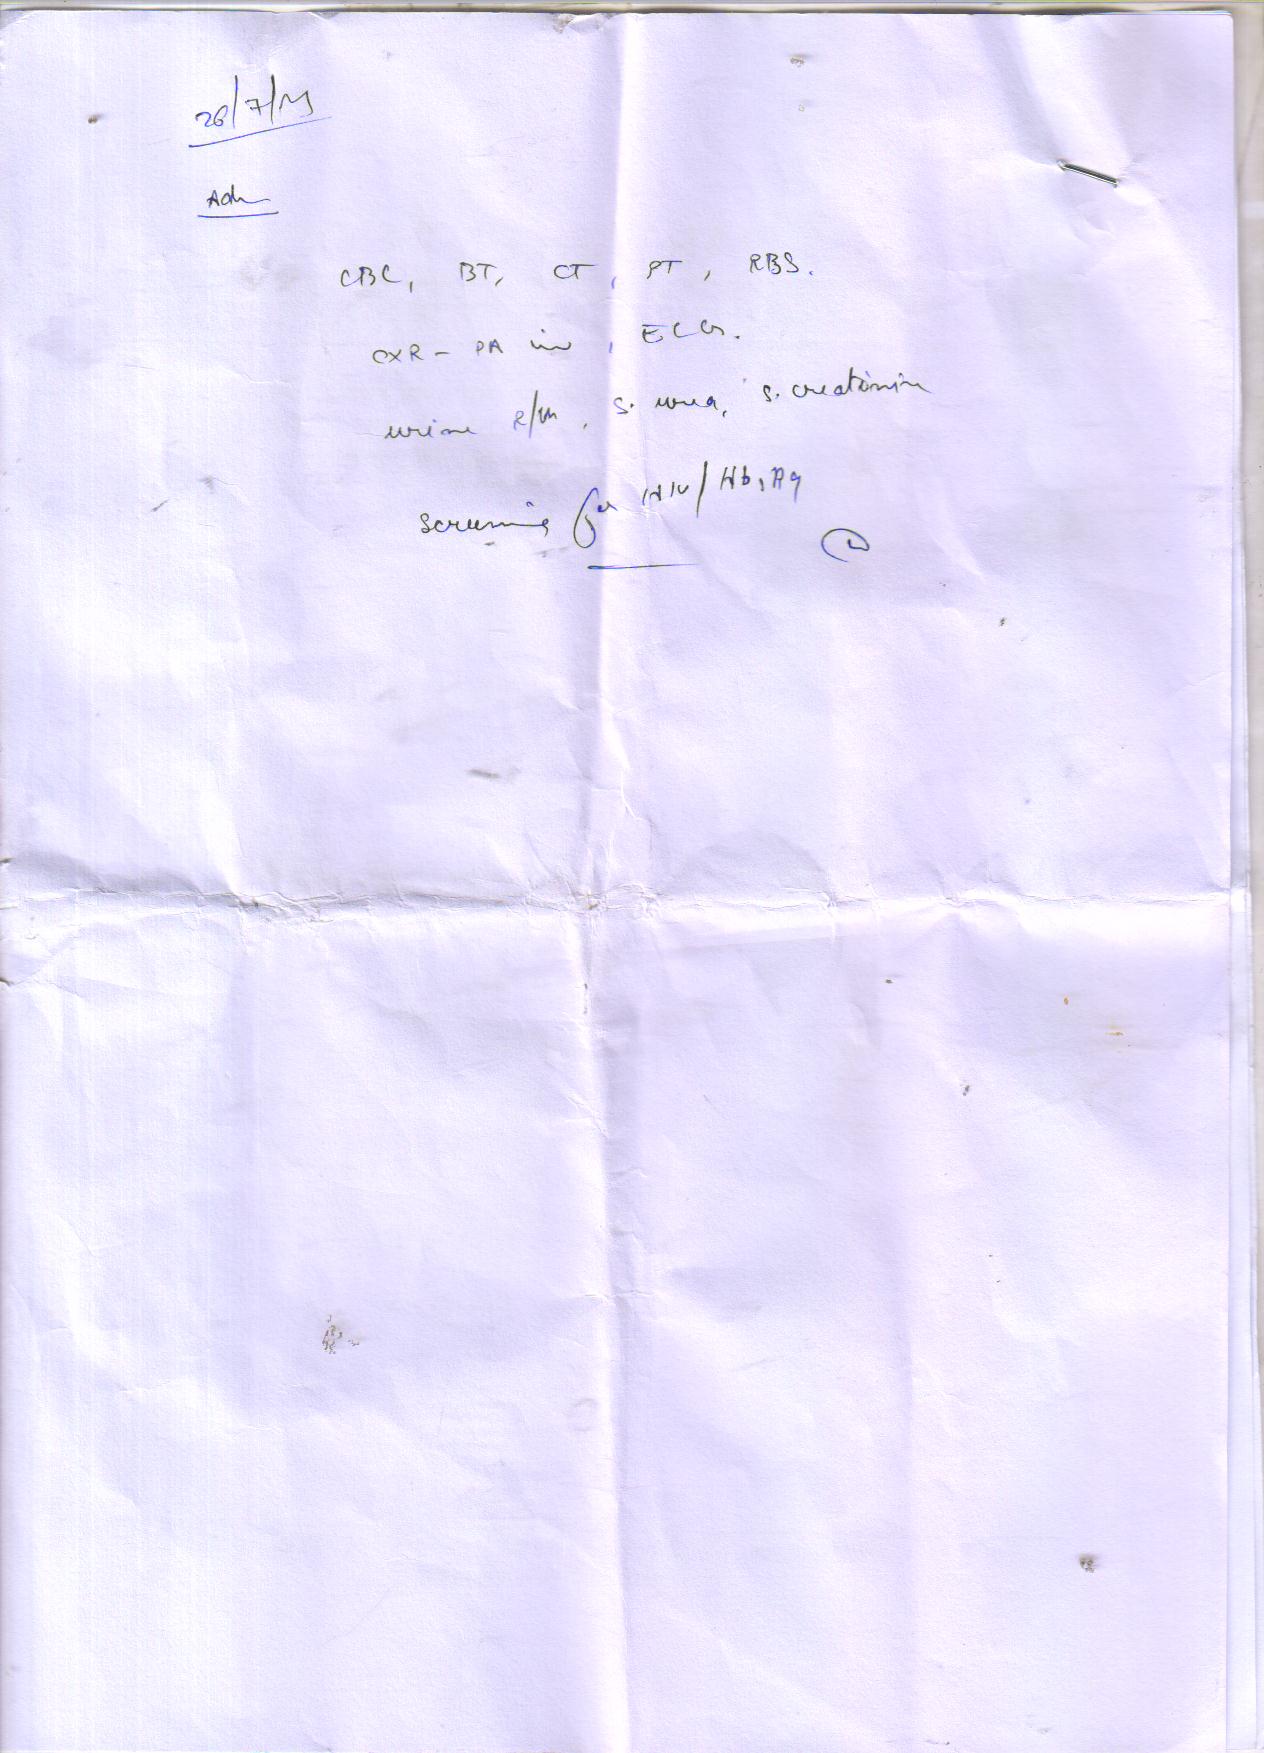 Adv
CBC, BT, CT, PT, RBS.
CXR - PA view, ECG.
urine R/M, S. urea, S. creatinine
screening for HIV/HbsAg